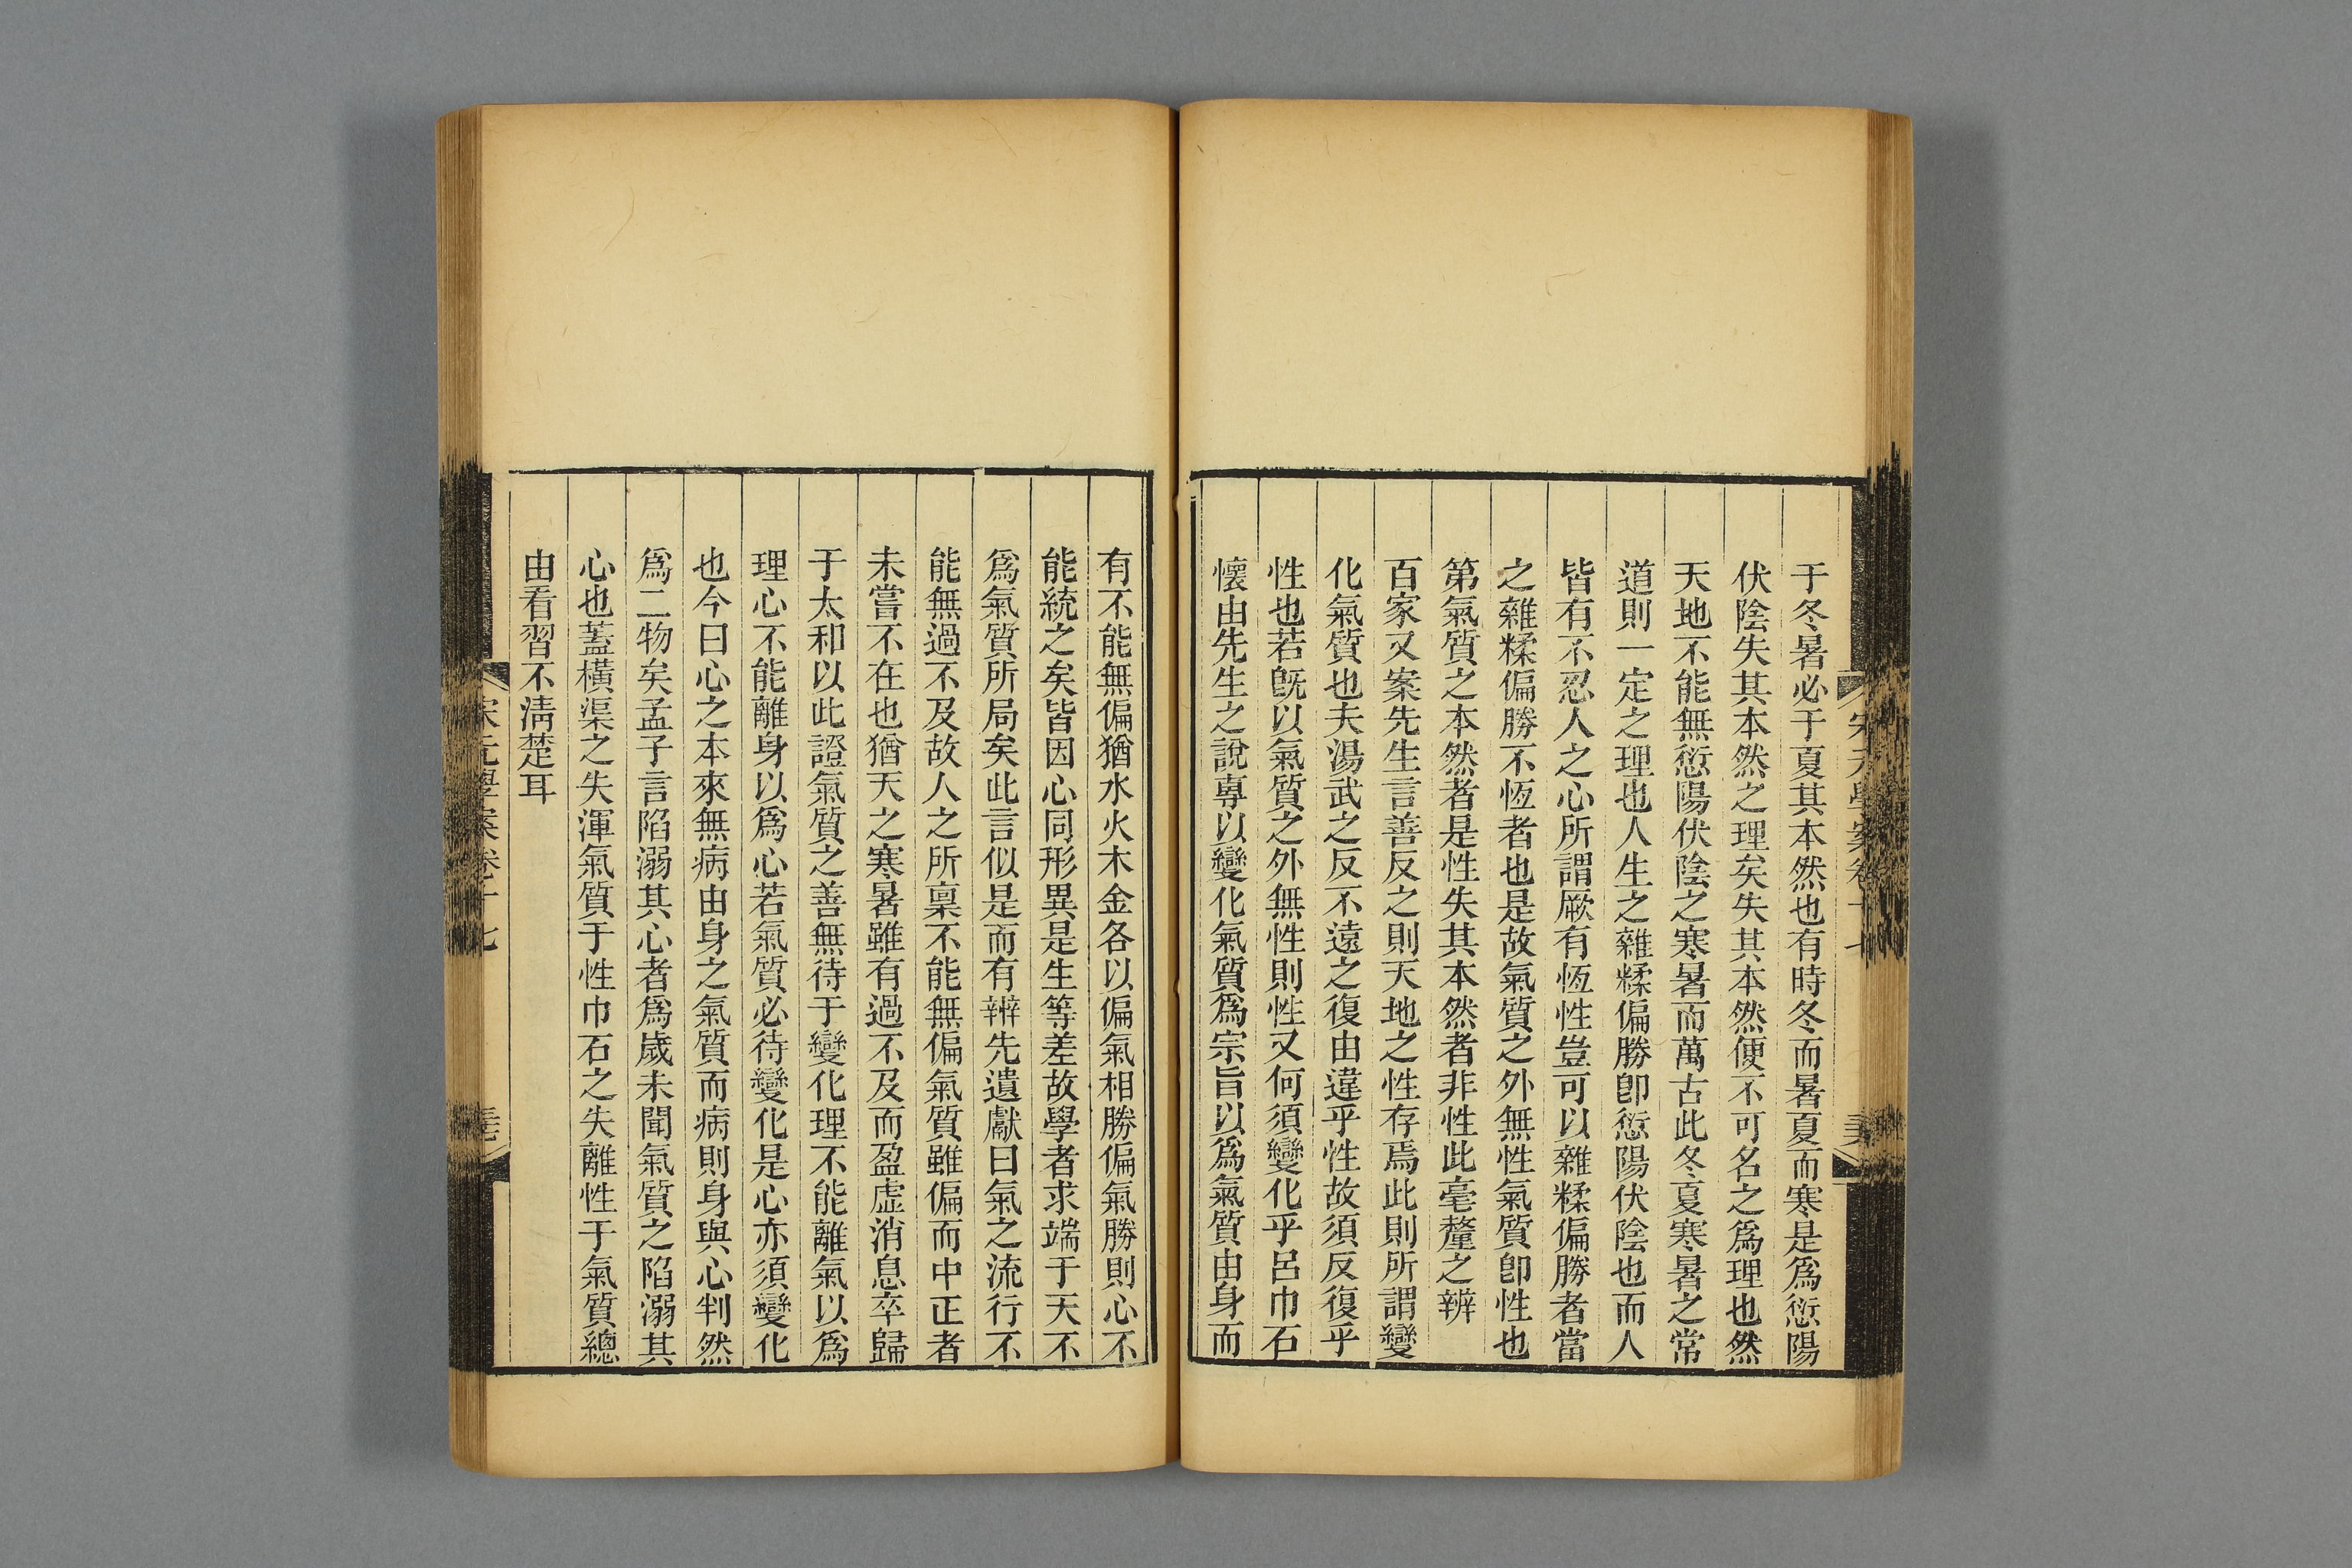 于冬暑必于夏其本然也有時冬而暑夏而寒是爲愆陽
伏陰失其本然之理矣失其本然便不可名之爲理也然
天地不能無愆陽伏陰之寒暑而萬古此冬夏寒暑之常
道則一定之理也人生之雜糅偏勝卽愆陽伏陰也而人
皆有不忍人之心所謂厥有恆性豈可以雜糅偏勝者當
之雜糅偏勝不恆者也是故氣質之外無性氣質卽性也
第氣質之本然者是性失其本然者非性此毫釐之辨
百家又案先生言善反之則天地之性存焉此則所謂變
化氣質也夫湯武之反不遠之復由違乎性故須反復乎
性也若旣以氣質之外無性則性又何須變化乎呂巾石
懷由先生之說專以變化氣質爲宗旨以爲氣質由身而
有不能無偏猶水火木金各以偏氣相勝偏氣勝則心不
能統之矣皆因心同形異是生等差故學者求端于天不
爲氣質所局矣此言似是而有辨先遺獻曰氣之流行不
能無過不及故人之所稟不能無偏氣質雖偏而中正者
未嘗不在也猶天之寒暑雖有過不及而盈虛消息卒歸
于太和以此證氣質之善無待于變化理不能離氣以爲
理心不能離身以爲心若氣質必待變化是心亦須變化
也今曰心之本來無病由身之氣質而病則身與心判然
爲二物矣孟子言陷溺其心者爲歲未聞氣質之陷溺其
心也蓋橫渠之失渾氣質于性巾石之失離性于氣質總
由看習不淸楚耳
宋元學案卷十七